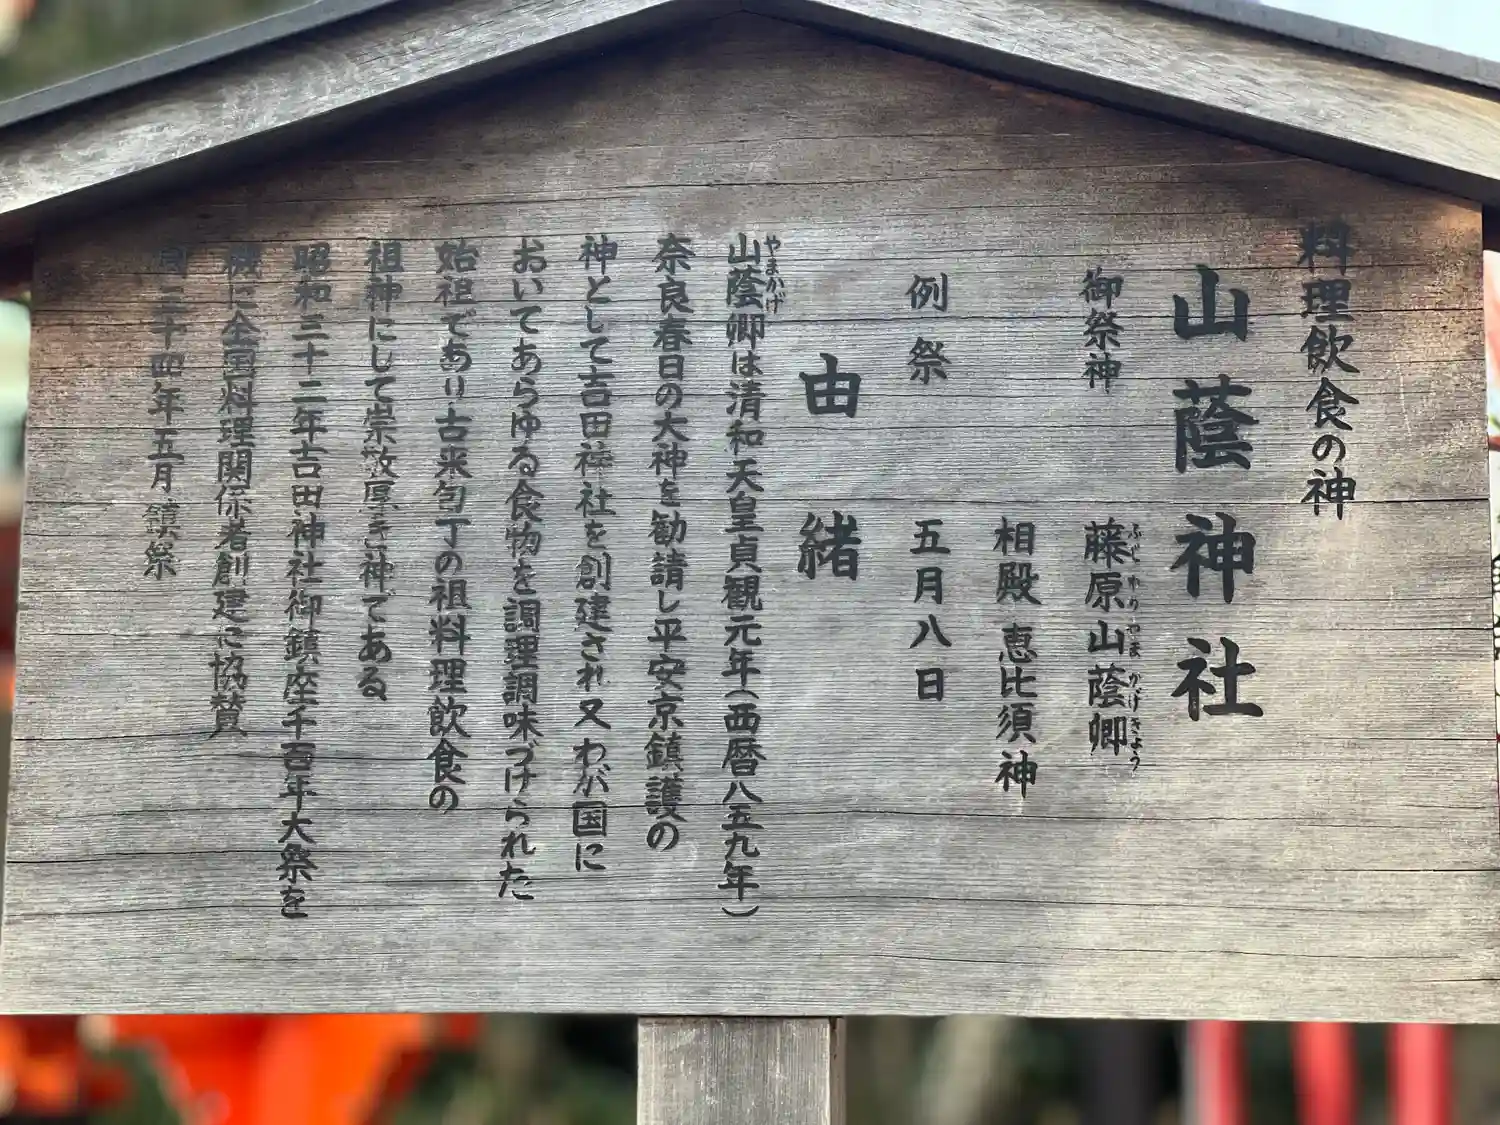 料理飲食の神
山蔭神社
御祭神 藤原山蔭卿
ふじわらのやまかげきょう
相殿 恵比須神
例祭 五月八日
由緒
山蔭卿は清和天皇貞観元年(西暦八五九年)
やまかげ
奈良春日の大神を勧請し平安京鎮護の
神として吉田神社を創建され又わが国に
おいてあらゆる食物を調理調味づけられた
始祖であり古来包丁の祖料理飲食の
祖神にして崇敬厚き神である
昭和三十二年吉田神社御鎮座千百年大祭を
機に全国料理関係者創建に協賛
同三十四年五月鎮祭